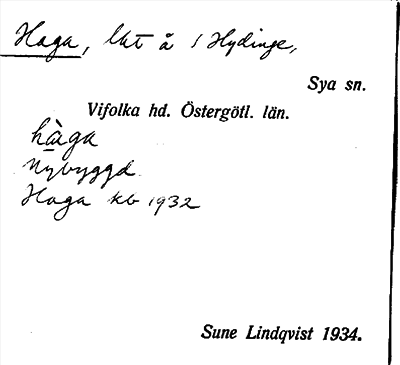 Haga, lht å S Hydinge,
Sya sn.
Vifolka hd. Östergötl. län.
hàga
Nybyggd
Haga kb 1932
Sune Lindqvist 1934.